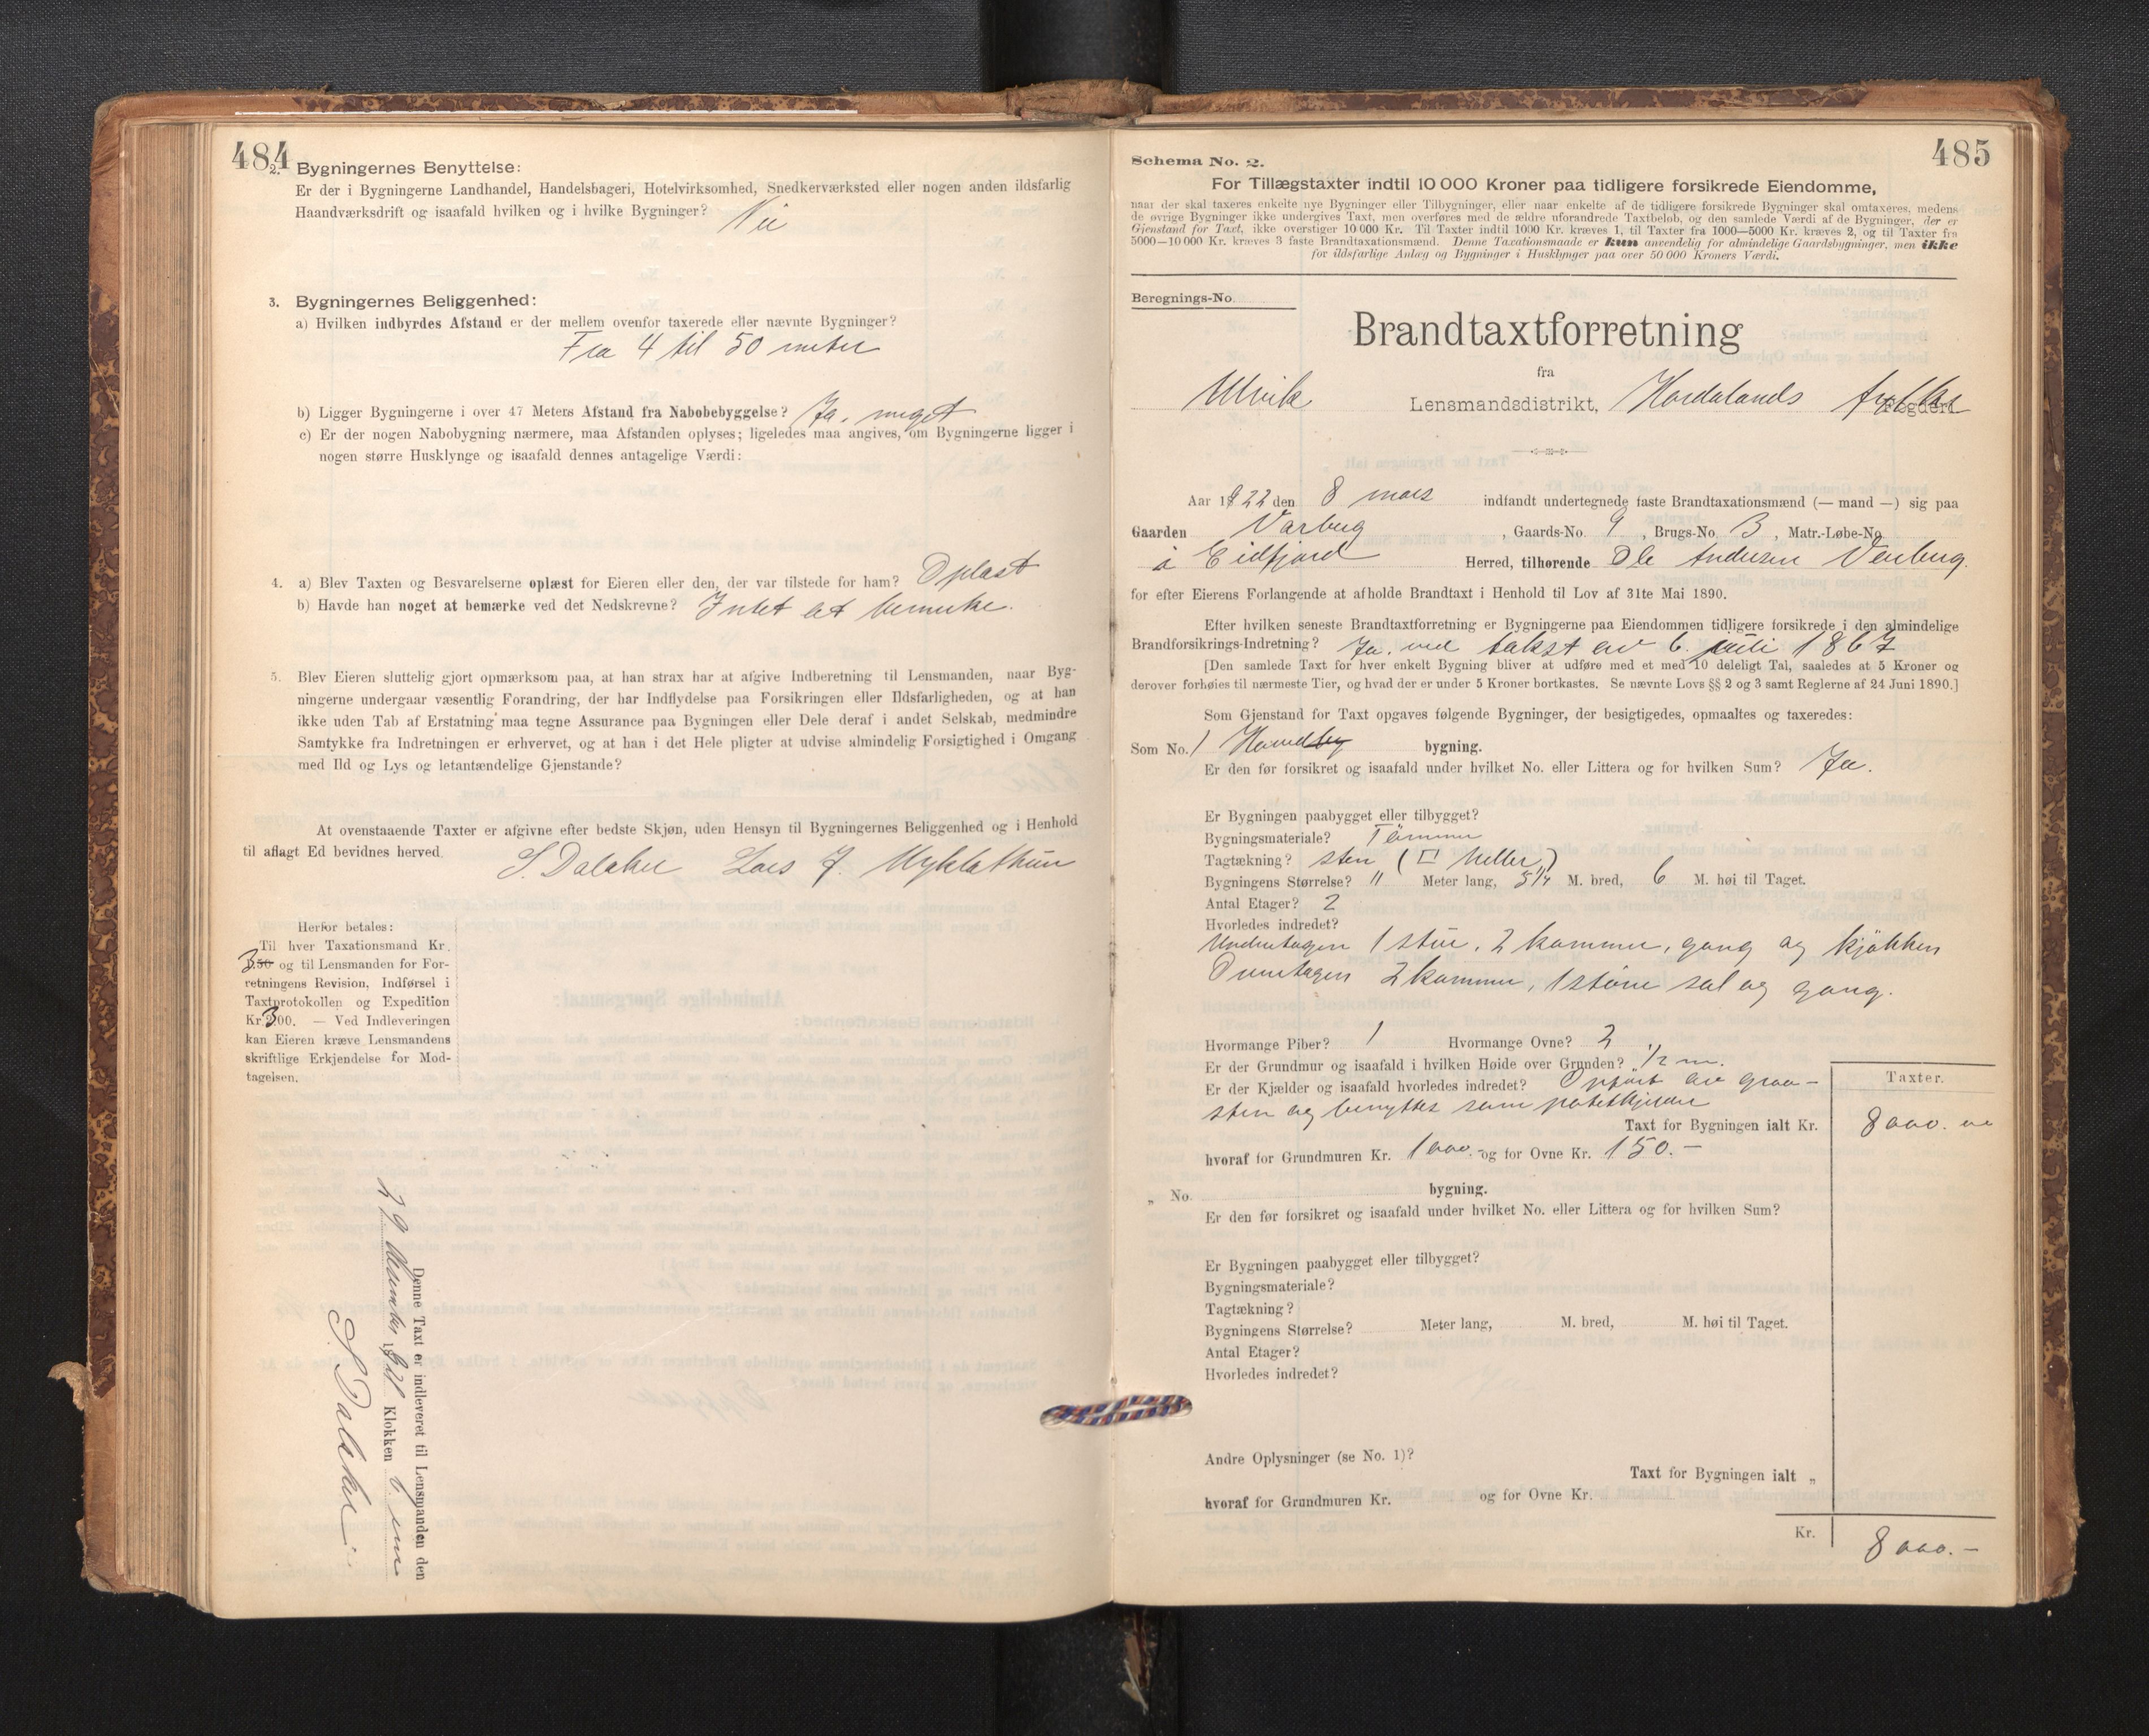 484
2. Bygningernes Benyttelse:
Er der i Bygningerne Landhandel, Handelsbageri, Hotelvirksomhed, Snedkerværksted eller nogen anden ildsfarlig
Haandværksdrift og isaafald hvilken og i hvilke Bygninger? Nei
3. Bygningernes Beliggenhed:
a) Hvilken indbyrdes Afstand er der mellem ovenfor taxerede eller nævnte Bygninger?
Fra 4 til 50 meter
b) Ligger Bygningerne i over 47 Meters Afstand fra Nabobebyggelse? Ja, meget
c) Er der nogen Nabobygning nærmere, maa Afstanden oplyses; ligeledes maa angives, om Bygningerne ligger i
nogen større Husklynge og isaafald dennes antagelige Værdi:
4. a) Blev Taxten og Besvarelserne oplæst for Eieren eller den, der var tilstede for ham? Oplæst
b) Havde han noget at bemærke ved det Nedskrevne? Intet at bemerke.
5. Blev Eieren sluttelig gjort opmærksom paa, at han strax har at afgive Indberetning til Lensmanden, naar Byg-
ningerne undergaar væsentlig Forandring, der har Indflydelse paa Forsikringen eller Ildsfarligheden, og at han
ikke uden Tab af Erstatning maa tegne Assurance paa Bygningen eller Dele deraf i andet Selskab, medmindre
Samtykke fra Indretningen er erhvervet, og at han i det Hele pligter at udvise almindelig Forsigtighed i Omgang
med Ild og Lys og letantændelige Gjenstande?
At ovenstaaende Taxter er afgivne efter bedste Skjøn, uden Hensyn til Bygningernes Beliggenhed og i Henhold
til aflagt Ed bevidnes herved S. Dalaker Lars J. Myklathun
Herfor betales:
Til hver Taxationsmand Kr.
3.50 og til Lensmanden for For-
retningens Revision, Indførsel i
Taxtprotokollen og Expedition
Kr. 3.00. — Ved Indleveringen
kan Eieren kræve Lensmandens
skriftlige Erkjendelse for Mod-
tagelsen.
Denne Taxt er indleveret til Lensmanden den
29 1921 Klokken 6
S. Dalaker
485
Schema No. 2.
For Tillægstaxter indtil 10 000 Kroner paa tidligere forsikrede Eiendomme,
naar der skal taxeres enkelte nye Bygninger eller Tilbygninger, eller naar enkelte af de tidligere forsikrede Bygninger skal omtaxeres, medens
de øvrige Bygninger ikke undergives Taxt, men overføres med de ældre uforandrede Taxtbeløb, og den samlede Værdi af de Bygninger, der er
Gjenstand for Taxt, ikke overstiger 10 000 Kr. Til Taxter indtil 1000 Kr. kræves 1, til Taxter fra 1000—5000 Kr. kræves 2, og til Taxter fra
5000—10 000 Kr. kræves 3 faste Brandtaxationsmænd. Denne Taxationsmaade er kun anvendelig for almindelige Gaardsbygninger, men ikke
for ildsfarlige Anlæg og Bygninger i Husklynger paa over 50 000 Kroners Værdi.
Beregnings-No.
Brandtaxtforretning
fra
Ulvik Lensmandsdistrikt, Hordalands fylke Fogderi
Aar 1922 den 8 mars indfandt undertegnede faste Brandtaxationsmænd (— mand —) sig paa
Gaarden Varberg, Gaards-No. 9, Brugs-No. 3, Matr.-Løbe-No.
i Eidfjord Herred, tilhørende Ole Andersen Varberg.
for efter Eierens Forlangende at afholde Brandtaxt i Henhold til Lov af 31te Mai 1890.
Efter hvilken seneste Brandtaxtforretning er Bygningerne paa Eiendommen tidligere forsikrede i den almindelige
Brandforsikrings-Indretning? Ja. ved takst av 6. juli 1867
[Den samlede Taxt for hver enkelt Bygning bliver at udføre med et med 10 deleligt Tal, saaledes at 5 Kroner og
derover forhøies til nærmeste Tier, og hvad der er under 5 Kroner bortkastes. Se nævnte Lovs §§ 2 og 3 samt Reglerne af 24 Juni 1890.]
Som Gjenstand for Taxt opgaves følgende Bygninger, der besigtigedes, opmaaltes og taxeredes:
Som No. 1 bygning.
Er den før forsikret og isaafald under hvilket No. eller Littera og for hvilken Sum? Ja.
Er Bygningen paabygget eller tilbygget?
Bygningsmateriale? Tømmer
Tagtækning? sten ( Heller )
Bygningens Størrelse? 11 Meter lang, 5 1/4 M. bred, 6 M. høi til Taget.
Antal Etager? 2
Hvorledes indredet?
Underetagen 1 stue, 2 kammer, gang og kjøkken
Overetagen 2 kammer, 1 større sal og gang.
Hvormange Piber? 1 Hvormange Ovne? 2
Er der Grundmur og isaafald i hvilken Høide over Grunden? 1/2 m.
Er der Kjælder og isaafald hvorledes indredet? Opført av graa-
sten og benyttes som potetkjeller
Taxter.
Taxt for Bygningen ialt Kr. 8000.00
hvoraf for Grundmuren Kr. 1000.- og for Ovne Kr. 150.-
„ No. bygning.
Er den før forsikret og isaafald under hvilket No. eller Littera og for hvilken Sum?
Er Bygningen paabygget eller tilbygget?
Bygningsmateriale?
Tagtækning?
Bygningens Størrelse? Meter lang, M. bred, M. høi til Taget.
Antal Etager?
Hvorledes indredet?
Andre Oplysninger (se No. 1)?
Taxt for Bygningen ialt „
hvoraf for Grundmuren Kr. og for Ovne Kr.
Kr. 8000.-